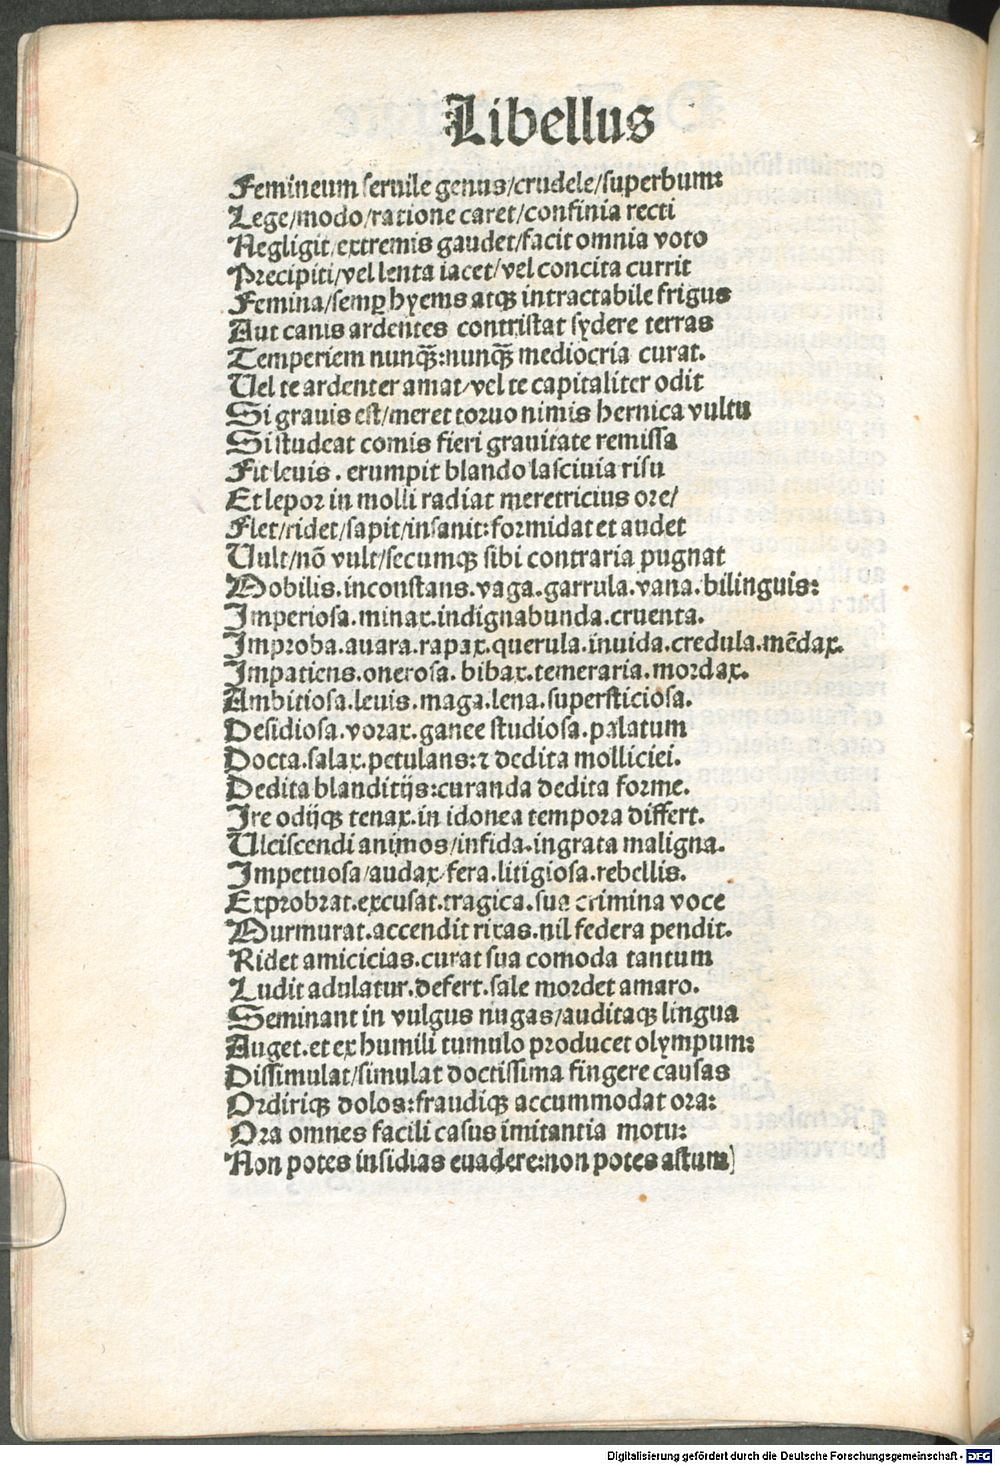 Libellus
Femineum seruile genus/crudele/superbum:
Lege/modo/ratione caret/confinia recti
Negligit/extremis gaudet/facit omnia voto
Precipiti/vel lenta iacet/vel concita currit
Femina/semꝑ hyems atqꝫ intractabile frigus
Aut canis ardentes contristat sydere terras
Temperiem nunqꝫ̃:nunqꝫ̃ mediocria curat.
Uel te ardenter amat/vel te capitaliter odit
Si grauis est/meret toruo nimis hernica vultu
Si studeat comis fieri grauitate remissa
Fit leuis. erumpit blando lasciuia risu
Et lepor in molli radiat meretricius ore/
Flet/ridet/sapit/insanit:formidat et audet
Uult/nō vult/secumqꝫ sibi contraria pugnat
Mobilis.inconstans.vaga.garrula.vana.bilinguis:
Imperiosa.minax.indignabunda.cruenta.
Improba.auara.rapax.querula.inuida.credula.mēdax.
Impatiens.onerosa.bibax.temeraria.mordax.
Ambitiosa.leuis.maga.lena.supersticiosa.
Desidiosa.vorax.ganee studiosa.palatum
Docta.salax.petulans:⁊ dedita molliciei.
Dedita blanditijs:curanda dedita forme.
Ire odijqꝫ tenax.in idonea tempora differt.
Ulciscendi animos/infida.ingrata maligna.
Impetuosa/audax/fera.litigiosa.rebellis.
Exprobrat.excusat.tragica.sua crimina voce
Murmurat.accendit rixas.nil federa pendit.
Ridet amicicias.curat sua comoda tantum
Ludit adulatur.defert.sale mordet amaro.
Seminant in vulgus nugas/auditaqꝫ lingua
Auget.et ex humili tumulo producet olympum:
Dissimulat/simulat doctissima fingere causas
Ordiriqꝫ dolos:fraudiqꝫ accummodat ora:
Ora omnes facili casus imitantia motu:
Non potes insidias euadere:non potes astum)
Digitalisierung gefördert durch die Deutsche Forschungsgemeinschaft - DFG